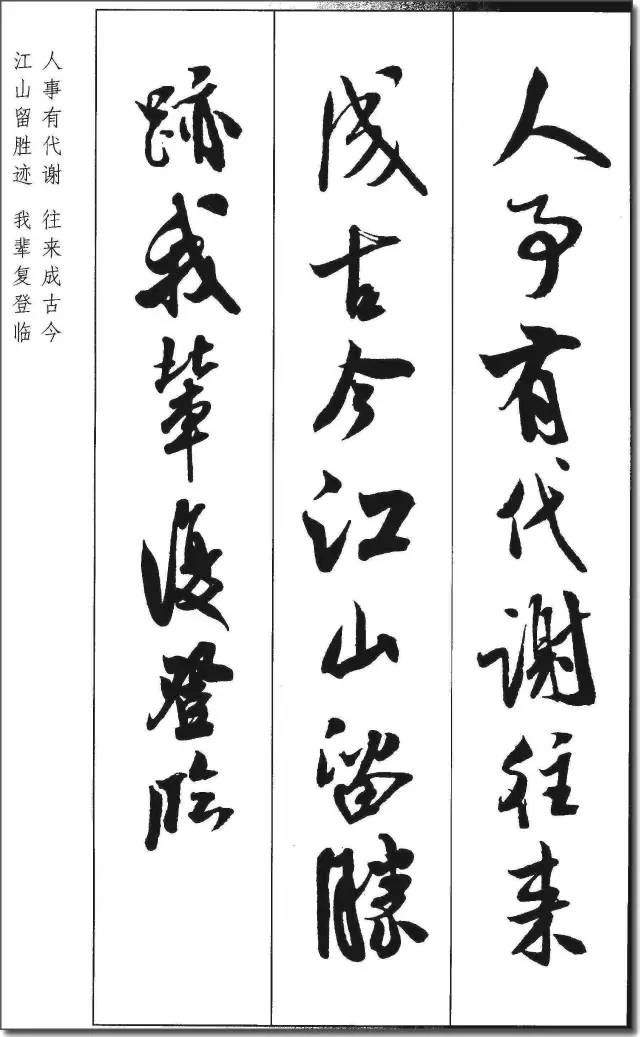 人事有代谢往来
成古今江山留勝
跡我輩復登临
人事有代谢 往来成古今
江山留胜迹 我辈复登临